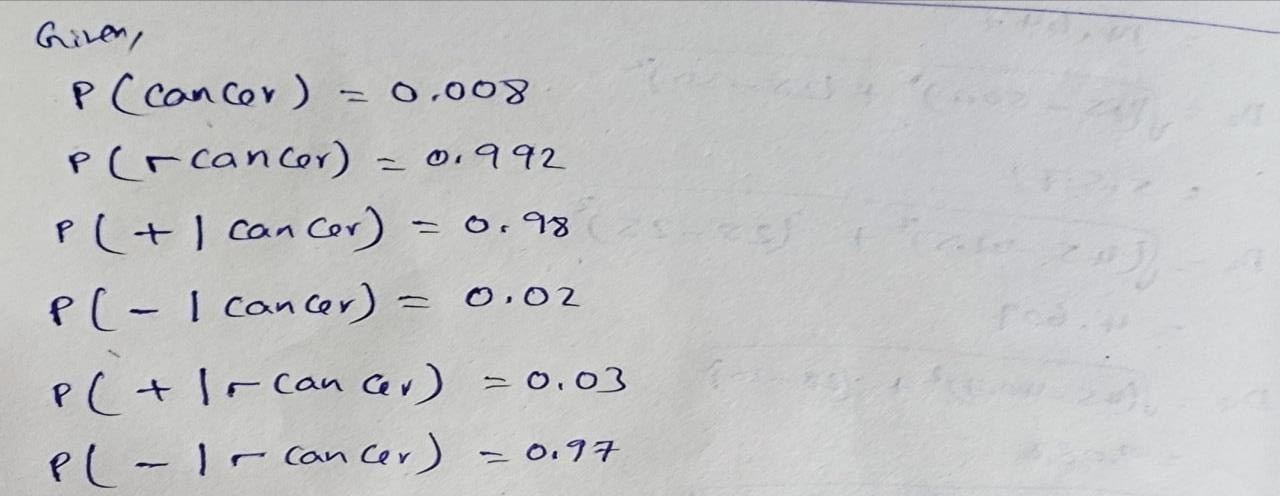 Given,
P(cancer) = 0.008
P(¬cancer) = 0.992
P(+|cancer) = 0.98
P(-|cancer) = 0.02
P(+|¬cancer) = 0.03
P(-|¬cancer) = 0.97